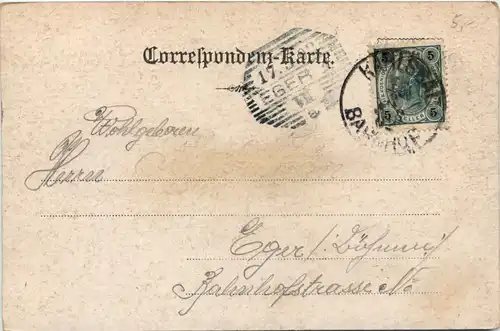 5.-
Correspondenz-Karte.
17.5
EGER
BAHNHOF
5 5
5 5
Wohlgeboren
Herrn
Eger (Böhmen)
Bahnhofstrasse No